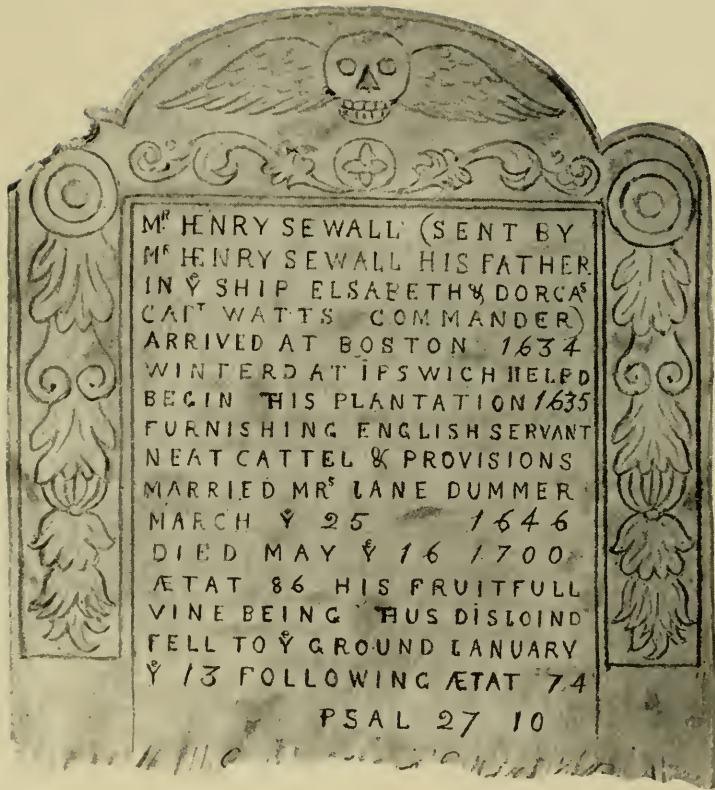 Mʳ HENRY SEWALL (SENT BY
Mʳ HENRY SEWALL HIS FATHER
IN Yᵉ SHIP ELSABETH & DORCAˢ
CAPᵀ WATTS COMMANDER)
ARRIVED AT BOSTON 1634
WINTERD AT IPSWICH HELPD
BEGIN THIS PLANTATION 1635
FURNISHING ENGLISH SERVANT
NEAT CATTEL & PROVISIONS
MARRIED MRˢ IANE DUMMER
MARCH Yᵉ 25 1646
DIED MAY Yᵉ 16 1700
ÆTAT 86 HIS FRUITFULL
VINE BEING THUS DISIOIND
FELL TO Yᵉ GROUND IANUARY
Yᵉ 13 FOLLOWING ÆTAT 74
PSAL 27 10